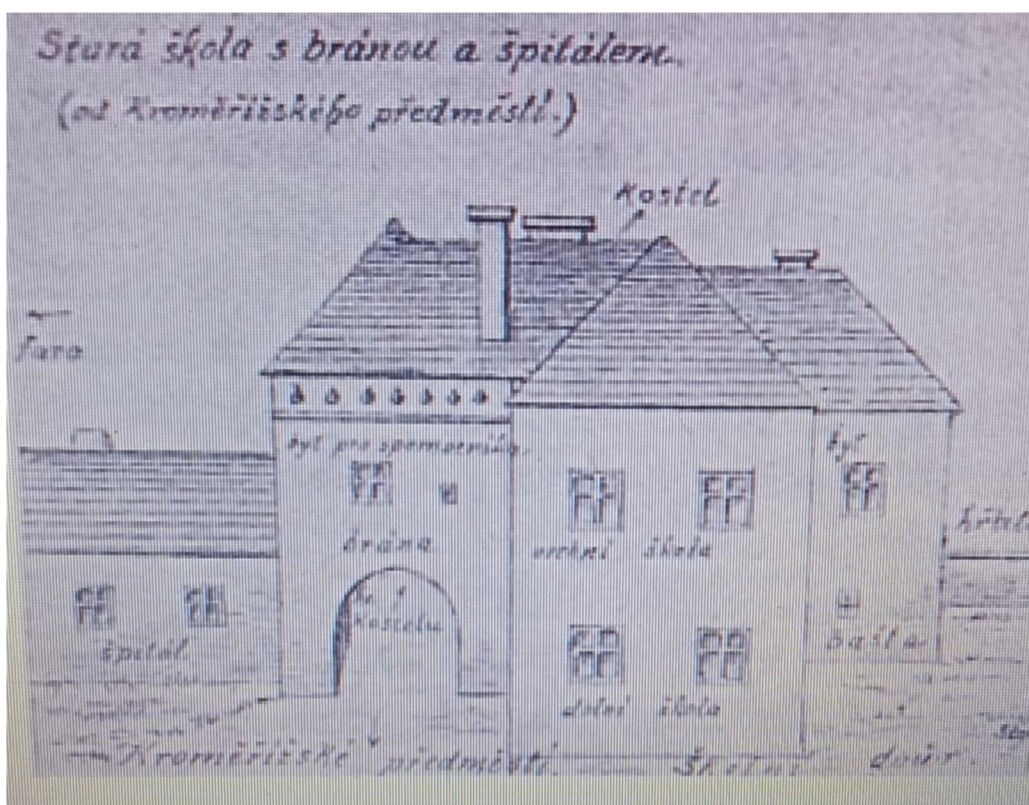 Stará škola s bránou a špitálem.
(od Kroměřížského předměstí.)
Kostel
Fara
byt pro
byt
brána
vrchní škola
k
kostelu
špitál.
bašta
dolní škola
Kroměřížské předměstí. Školní dvůr.